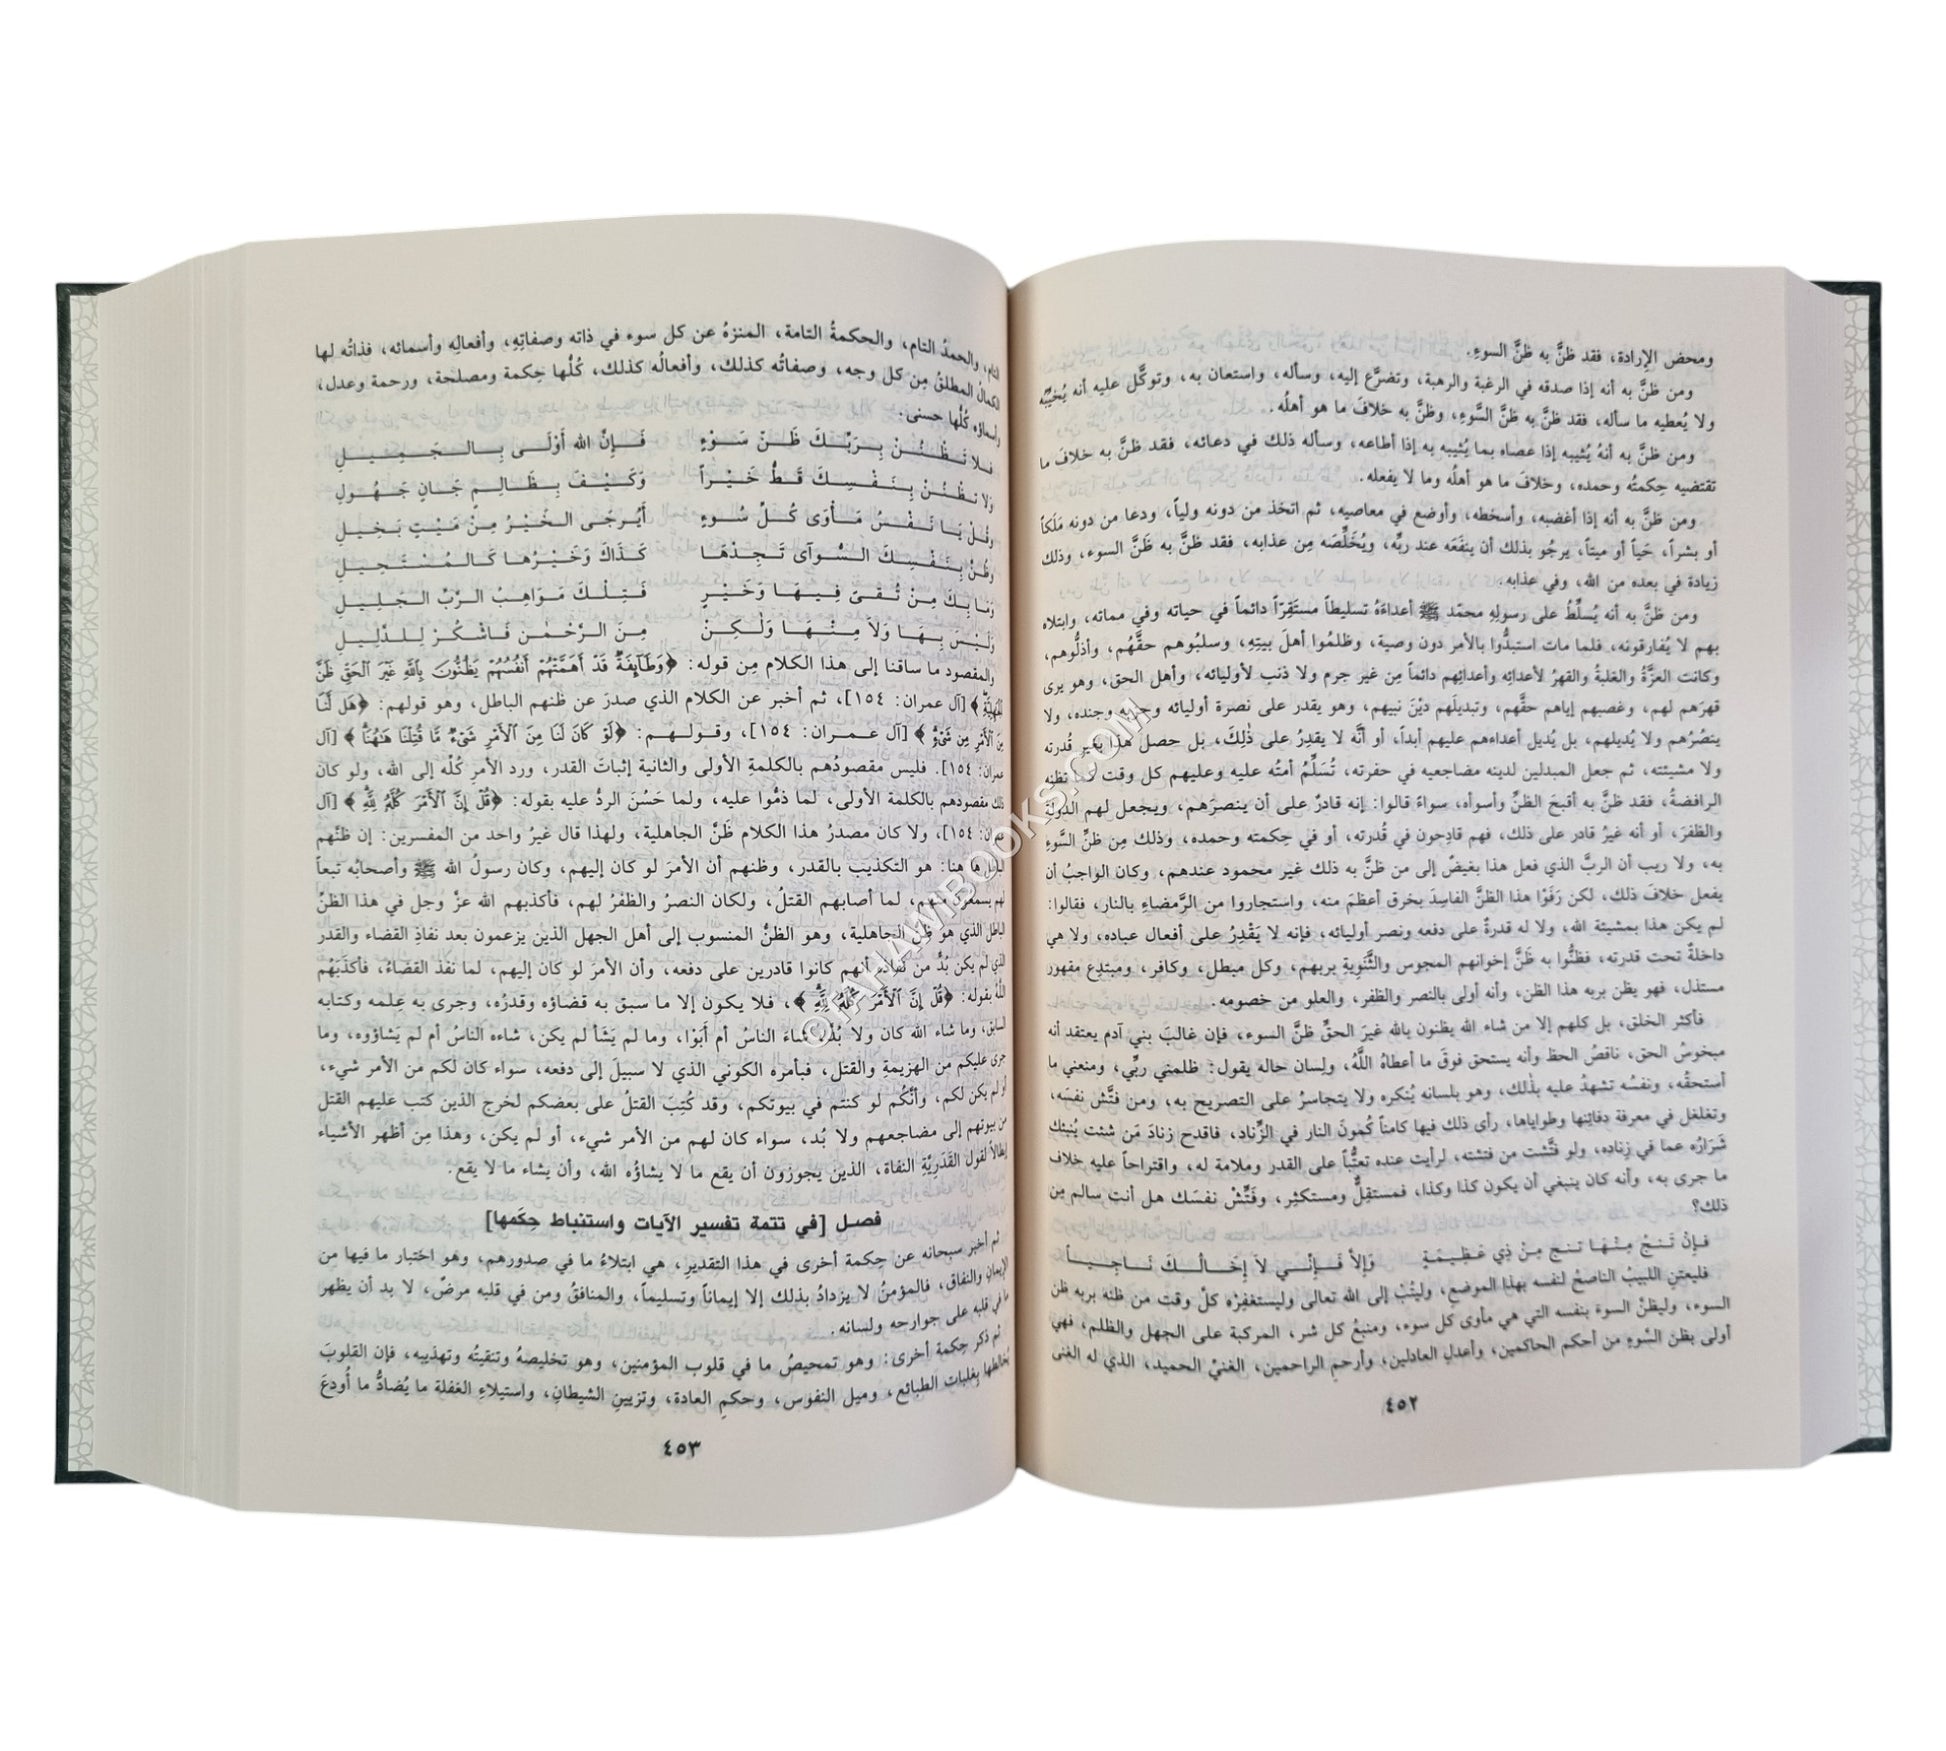 ومحض الإرادة، فقد ظنَّ به ظنَّ السوءِ.
ومن ظنَّ به أنه إذا صدقه في الرغبة والرهبة، وتضرَّع إليه، وسأله، واستعان به، وتوكَّل عليه أنه يُخيِّبُه
ولا يُعطيه ما سأله، فقد ظنَّ به ظنَّ السَّوءِ، وظنَّ به خلافَ ما هو أهلُه.
ومن ظنَّ به أنهُ يُثيبه إذا عصاه بما يُثيبه به إذا أطاعه، وسأله ذلك في دعائه، فقد ظنَّ به خلافَ ما
تقتضيه حِكمتُه وحمده، وخلافَ ما هو أهلُه وما لا يفعله.
ومن ظنَّ به أنه إذا أغضبه، وأسخطه، وأوضع في معاصيه، ثم اتخذ من دونه ولياً، ودعا من دونه مَلَكاً
أو بشراً، حَياً أو ميتاً، يرجُو بذلك أن ينفَعَه عند ربِّه، ويُخَلِّصَه مِن عذابه، فقد ظنَّ به ظَنَّ السوء، وذلك
زيادة في بعده من الله، وفي عذابه.
ومن ظنَّ به أنه يُسلِّطُ على رسولِهِ محمّد ﷺ أعداءَهُ تسليطاً مستَقِرّاً دائماً في حياته وفي مماته، وابتلاه
بهم لا يُفارقونه، فلما مات استبدُّوا بالأمر دون وصية، وظلمُوا أهلَ بيتِهِ، وسلبُوهم حقَّهُم، وأذلُّوهم،
وكانت العزَّةُ والغلبةُ والقهرُ لأعدائِه وأعدائِهم دائماً مِن غير جرم ولا ذنب لأوليائه، وأهل الحق، وهو يرى
قهرَهم لهم، وغصبهم إياهم حقَّهم، وتبديلَهم ديْنَ نبيهم، وهو يقدر على نصرة أوليائه وحزبه وجنده، ولا
ينصُرُهم ولا يُديلهم، بل يُديل أعداءهم عليهم أبداً، أو أنَّه لا يقدِرُ على ذٰلِكَ، بل حصل هذا بغير قُدرته
ولا مشيئته، ثم جعل المبدلين لدينه مضاجعيه في حفرته، تُسَلِّمُ أمتُه عليه وعليهم كل وقت كما تظنه
الرافضةُ، فقد ظنَّ به أقبحَ الظنِّ وأسوأه، سواءً قالوا: إنه قادرٌ على أن ينصرَهم، ويجعل لهم الدولة
والظفرَ، أو أنه غيرُ قادر على ذلك، فهم قادِحون في قُدرته، أو في حِكمته وحمده، وذلك مِن ظنِّ السَّوءِ
به، ولا ريب أن الربَّ الذي فعل هذا بغيضٌ إلى من ظنَّ به ذلك غير محمود عندهم، وكان الواجبُ أن
يفعل خلافَ ذلك، لكن رَفَوْا هذا الظنَّ الفاسِدَ بخرق أعظمَ منه، واستجاروا من الرَّمضاءِ بالنار، فقالوا:
لم يكن هذا بمشيئة الله، ولا له قدرةٌ على دفعه ونصر أوليائه، فإنه لا يَقْدِرُ على أفعال عباده، ولا هي
داخلةٌ تحت قدرته، فظنُّوا به ظَنَّ إخوانهم المجوس والثَّنَوِيةِ بربهم، وكل مبطل، وكافر، ومبتدِع مقهور
مستذل، فهو يظن بربه هذا الظن، وأنه أولى بالنصر والظفر، والعلو من خصومه.
فأكثر الخلق، بل كلهم إلا من شاء الله يظنون بالله غيرَ الحقِّ ظنَّ السوء، فإن غالبَ بني آدم يعتقد أنه
مبخوسُ الحق، ناقصُ الحظ وأنه يستحق فوقَ ما أعطاهُ اللَّهُ، ولِسان حاله يقول: ظلمني ربِّي، ومنعني ما
أستحقُّه، ونفسُه تشهدُ عليه بذٰلك، وهو بلسانه يُنكره ولا يتجاسرُ على التصريح به، ومن فتَّش نفسَه،
وتغلغل في معرفة دفائِنها وطواياها، رأى ذلك فيها كامناً كُمونَ النار في الزِّناد، فاقدح زنادَ مَن شئت يُنبئك
شَرَارُه عما في زِناده، ولو فتَّشت من فتشته، لرأيت عنده تعتُّباً على القدر وملامة له، واقتراحاً عليه خلاف
ما جرى به، وأنه كان ينبغي أن يكون كذا وكذا، فمستقِلٌّ ومستكثِر، وفَتِّشْ نفسَك هل أنت سالم مِن
ذلك؟
فَإِنْ تَنجُ مِنْهَا تنج مِنْ ذِي عَظِيمَةٍ وَإِلاَّ فَإِنِّي لاَ إِخَالُكَ نَاجِياً
فليعتنِ اللبيبُ الناصحُ لنفسه بهذا الموضعِ، وليتُبْ إلى الله تعالى وليستغفِرْه كلَّ وقت من ظنه بربه ظن
السوء، وليظنَّ السوءَ بنفسه التي هي مأوى كل سوء، ومنبعُ كل شر، المركبة على الجهل والظلم، فهي
أولى بظن السَّوءِ من أحكم الحاكمين، وأعدلِ العادلين، وأرحم الراحمين، الغنيِّ الحميد، الذي له الغنى
٤٥٢
التام، والحمدُ التام، والحكمةُ التامة، المنزهُ عن كل سوء في ذاته وصفاتِهِ، وأفعالِه وأسمائه، فذاتُه لها
الكمالُ المطلقُ مِن كل وجه، وصفاتُه كذلك، وأفعالُه كذلك، كُلُّها حِكمة ومصلحة، ورحمة وعدل،
وأسماؤه كُلُّها حسنى.
فلا تَظْنُنْ بِرَبِّكَ ظَنَّ سَوْءٍ فَإِنَّ الله أَوْلَى بِالجَمِيلِ
وَلا تظْنُنْ بِنَفْسِكَ قَطُّ خَيْراً وَكَيْفَ بِظَالِمٍ جَانٍ جَهُولِ
وَقُلْ يَا نَفْسُ مَأْوَى كُلِّ سُوءٍ أَيُرجَى الخَيْرُ مِنْ مَيْتٍ بَخِيلِ
وظُنَّ بِنَفْسِكَ السُّوآى تَجِدْهَا كَذَاكَ وَخَيْرُها كَالمُسْتَحِيلِ
وَمَا بِكَ مِنْ تُقىً فِيهَا وَخَيْرٍ فَتِلْكَ مَوَاهِبُ الرَّبِّ الجَلِيلِ
وَلَيْسَ بِهَا وَلاَ مِنْهَا وَلٰكِنْ مِنَ الرَّحْمٰن فَاشْكُرْ لِلدَّلِيلِ
والمقصود ما ساقنا إلى هذا الكلام مِن قوله: ﴿وَطَآئِفَةٌ قَدْ أَهَمَّتْهُمْ أَنفُسُهُمْ يَظُنُّونَ بِاللَّهِ غَيْرَ الْحَقِّ ظَنَّ
الْجَاهِلِيَّةِ﴾ [آل عمران: ١٥٤]، ثم أخبر عن الكلام الذي صدرَ عن ظنهم الباطل، وهو قولهم: ﴿هَل لَّنَا
مِنَ الْأَمْرِ مِن شَيْءٍ﴾ [آل عمران: ١٥٤]، وقولهم: ﴿لَوْ كَانَ لَنَا مِنَ الْأَمْرِ شَيْءٌ مَّا قُتِلْنَا هَاهُنَا﴾ [آل
عمران: ١٥٤]. فليس مقصودُهم بالكلمةِ الأولى والثانية إثباتَ القدر، ورد الأمرِ كُلِّه إلى الله، ولو كان
ذلك مقصودهم بالكلمة الأولى، لما ذمُّوا عليه، ولما حَسُنَ الردُّ عليه بقوله: ﴿قُلْ إِنَّ الْأَمْرَ كُلَّهُ لِلَّهِ﴾ [آل
عمران: ١٥٤]، ولا كان مصدرُ هذا الكلام ظَنَّ الجاهلية، ولهذا قال غيرُ واحد من المفسرين: إن ظنَّهم
الباطل ها هنا: هو التكذيب بالقدر، وظنهم أن الأمرَ لو كان إليهم، وكان رسولُ الله ﷺ وأصحابُه تبعاً
لهم يسمعون منهم، لما أصابهم القتلُ، ولكان النصرُ والظفرُ لهم، فأكذبهم الله عزَّ وجل في هذا الظنِّ
الباطل الذي هو ظنُّ الجاهلية، وهو الظنُّ المنسوب إلى أهل الجهل الذين يزعمون بعد نفاذِ القضاء والقدر
الذي لم يكن بُدٌّ من نفاذه أنهم كانوا قادرين على دفعه، وأن الأمرَ لو كان إليهم، لما نفذ القضاءُ، فأكذَبَهُم
اللَّهُ بقوله: ﴿قُلْ إِنَّ الْأَمْرَ كُلَّهُ لِلَّهِ﴾، فلا يكون إلا ما سبق به قضاؤه وقدرُه، وجرى به عِلمه وكتابه
السابق، وما شاء الله كان ولا بُدَّ، شاءَ الناسُ أم أَبَوْا، وما لم يَشَأْ لم يكن، شاءه الناسُ أم لم يَشاؤوه، وما
جرى عليكم من الهزيمةِ والقتل، فبأمره الكوني الذي لا سبيلَ إلى دفعه، سواء كان لكم من الأمر شيء،
أو لم يكن لكم، وأنَّكُم لو كنتم في بيوتكم، وقد كُتِبَ القتلُ على بعضكم لخرج الذين كتب عليهم القتل
من بيوتهم إلى مضاجعهم ولا بُد، سواء كان لهم من الأمر شيء، أو لم يكن، وهذا مِن أظهر الأشياء
إبطالاً لقول القَدَرِيَّةِ النفاة، الذين يجوزون أن يقع ما لا يشاؤُه الله، وأن يشاء ما لا يقع.
فصل [في تتمة تفسير الآيات واستنباط حِكَمها]
ثم أخبر سبحانه عن حِكمة أخرى في هذا التقديرِ، هي ابتلاءُ ما في صدورهم، وهو اختبار ما فيها من
الإيمانِ والنفاق، فالمؤمنُ لا يزدادُ بذلك إلا إيماناً وتسليماً، والمنافقُ ومن في قلبه مرضٌ، لا بد أن يظهر
ما في قلبه على جوارحه ولسانه.
ثم ذكر حِكمة أخرى: وهو تمحيصُ ما في قلوب المؤمنين، وهو تخليصُهُ وتنقيتُه وتهذيبه، فإن القلوبَ
يُخالطها بغلبات الطبائع، وميل النفوس، وحكمِ العادة، وتزيينِ الشيطانِ، واستيلاءِ الغفلة ما يُضادُّ ما أُودعَ
٤٥٣
©FAHAMBOOKS.COM